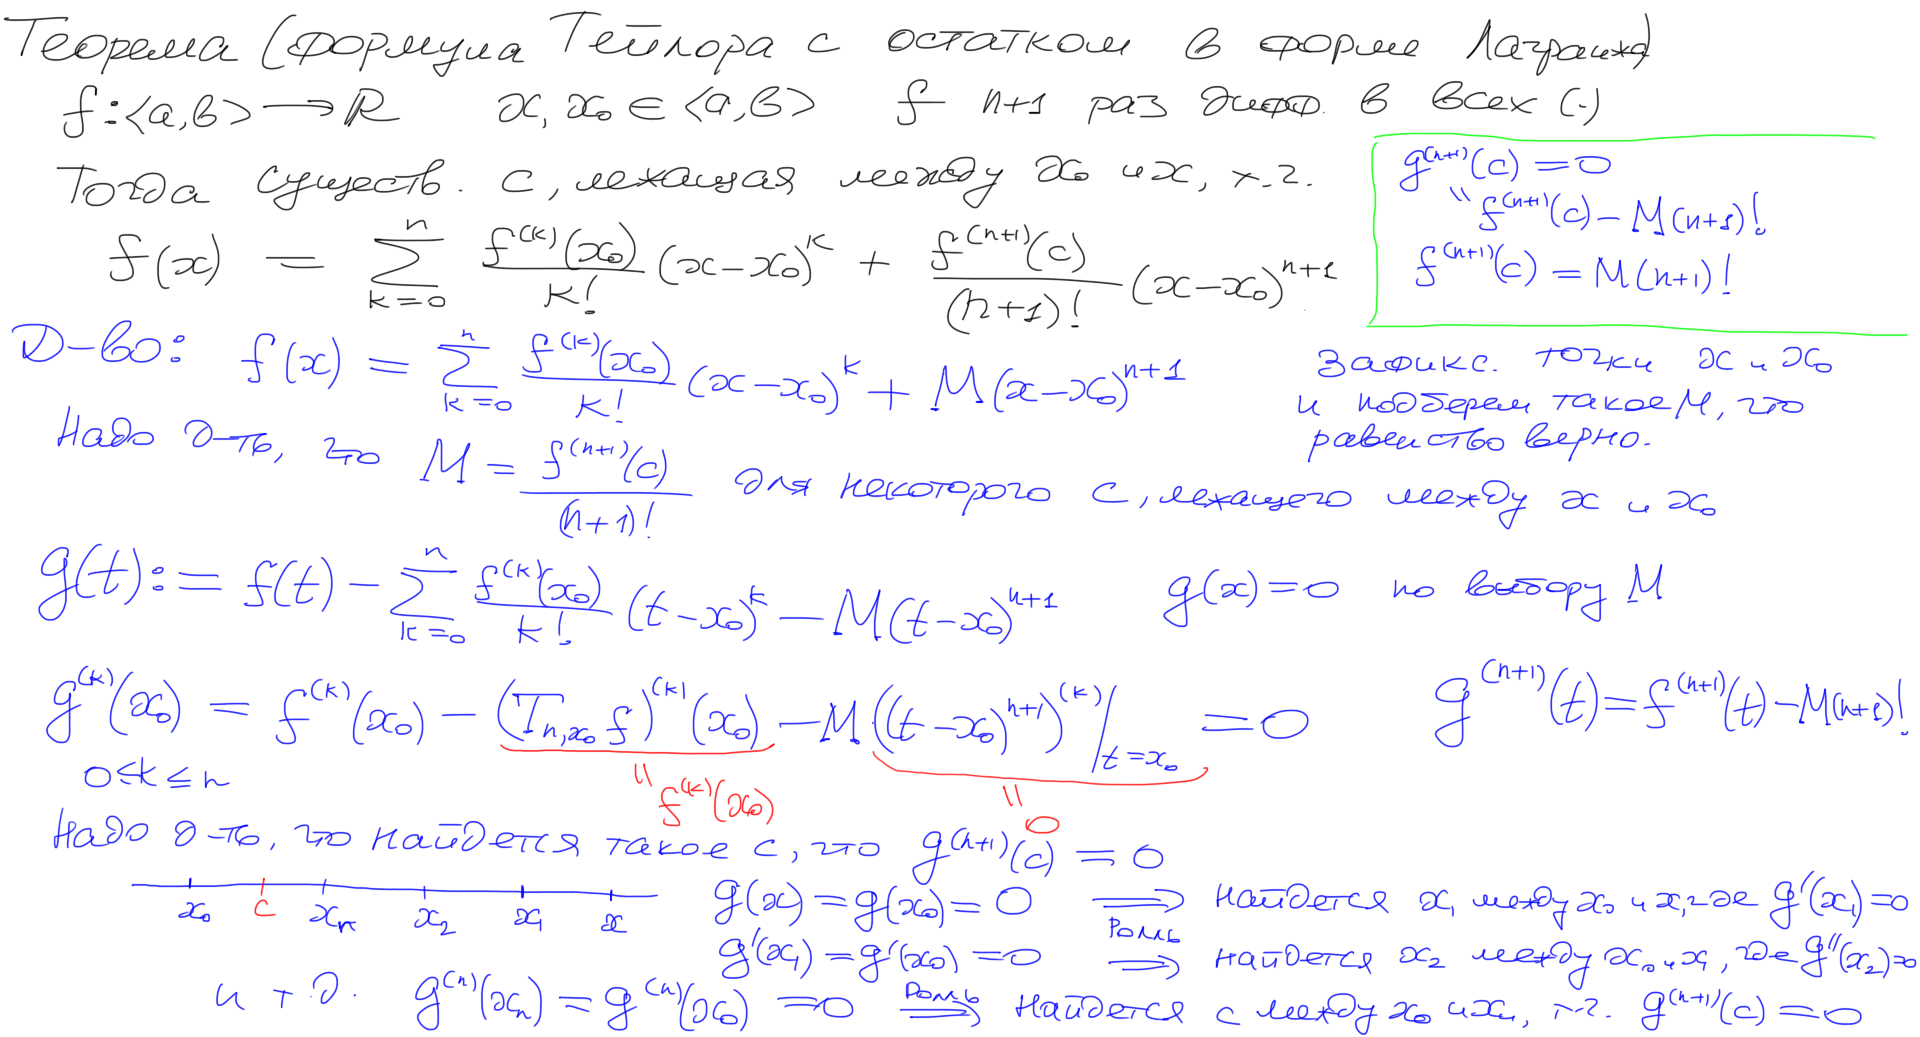 Теорема (формула Тейлора с остатком в форме Лагранжа)
f:<a,b> → R x, x₀ ∈ <a,b> f n+1 раз дифф. в всех (·)
Тогда существ. c, лежащая между x₀ и x, т.ч.
f(x) = ∑_{k=0}^{n} f^{(k)}(x₀)/k! (x-x₀)^k + f^{(n+1)}(c)/(n+1)! (x-x₀)^{n+1}
g^{(n+1)}(c) = 0
" f^{(n+1)}(c) - M(n+1)!
f^{(n+1)}(c) = M(n+1)!
Д-во: f(x) = ∑_{k=0}^{n} f^{(k)}(x₀)/k! (x-x₀)^k + M(x-x₀)^{n+1}
Зафикс. точки x и x₀
и подберем такое M, что
равенство верно.
Надо д-ть, что M = f^{(n+1)}(c)/(n+1)! для некоторого c, лежащего между x и x₀
g(t) := f(t) - ∑_{k=0}^{n} f^{(k)}(x₀)/k! (t-x₀)^k - M(t-x₀)^{n+1} g(x) = 0 по выбору M
g^{(k)}(x₀) = f^{(k)}(x₀) - (T_{n,x₀} f)^{(k)}(x₀) - M((t-x₀)^{n+1})^{(k)}|_{t=x₀} = 0 g^{(n+1)}(t) = f^{(n+1)}(t) - M(n+1)!
0≤k≤n " f^{(k)}(x₀) " 0
Надо д-ть, что найдется такое c, что g^{(n+1)}(c) = 0
x₀ c xₙ x₂ x₁ x
g(x) = g(x₀) = 0 ⟹ Ролль найдется x₁ между x₀ и x, где g'(x₁)=0
g'(x₁) = g'(x₀) = 0 ⟹ найдется x₂ между x₀ и x₁, где g''(x₂)=0
и т.д. g^{(n)}(xₙ) = g^{(n)}(x₀) = 0 Ролль ⟹ найдется c между x₀ и xₙ, т.ч. g^{(n+1)}(c) = 0